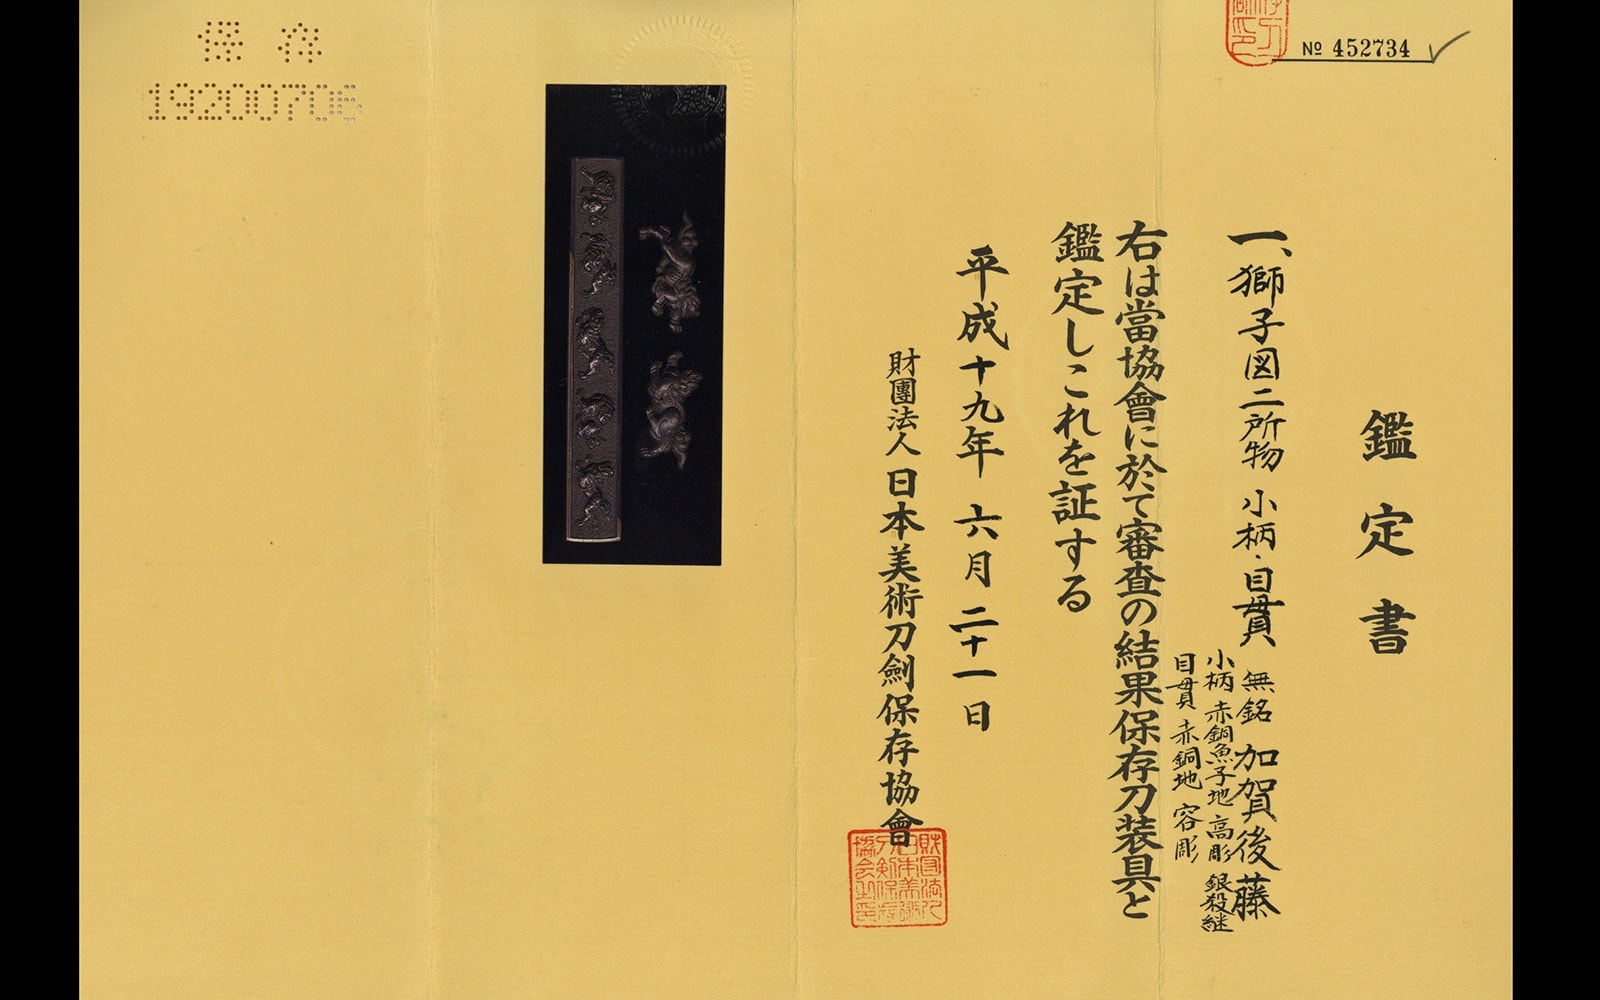 保存
19200706
No 452734
鑑定書
一、獅子図二所物 小柄・目貫 無銘 加賀後藤
小柄 赤銅魚子地 高彫 銀殺継
目貫 赤銅地 容彫
右は當協會に於て審査の結果保存刀装具と
鑑定しこれを証する
平成十九年 六月 二十一日
財團法人 日本美術刀劍保存協會